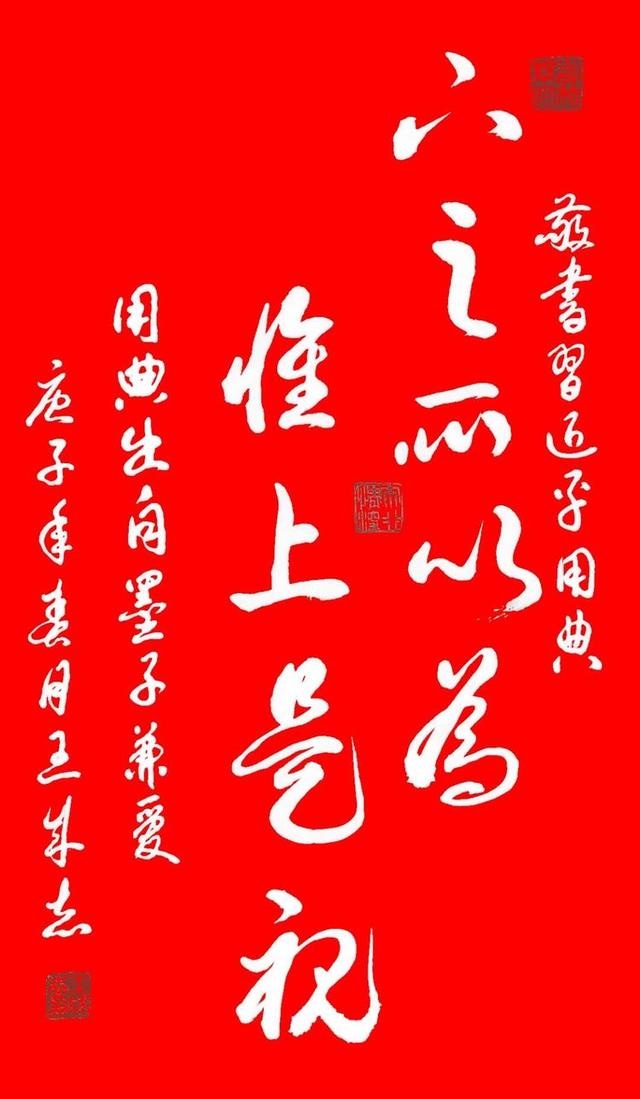 敬書習近平用典
下之所以為
惟上是視
用典出自墨子兼愛
庚子年春月王成志